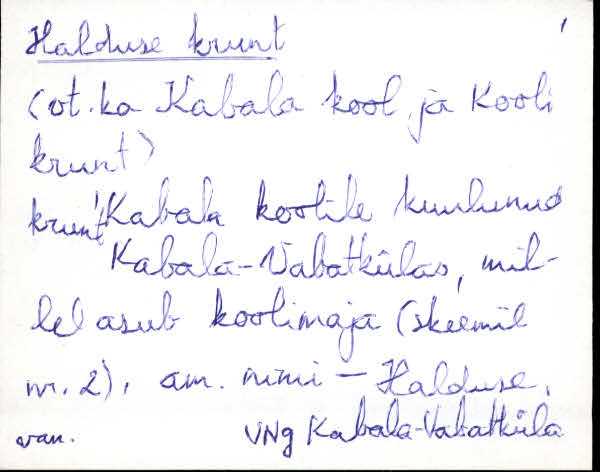 Halduse krunt
(vt. ka Kabala kool ja Kooli
krunt)
krunt Kabala koolile kuulunud
Kabala-Vabatkülas, mil-
lel asub koolimaja (skeemil
nr. 2), am. nimi - Halduse.
van. VNg Kabala-Vabatküla